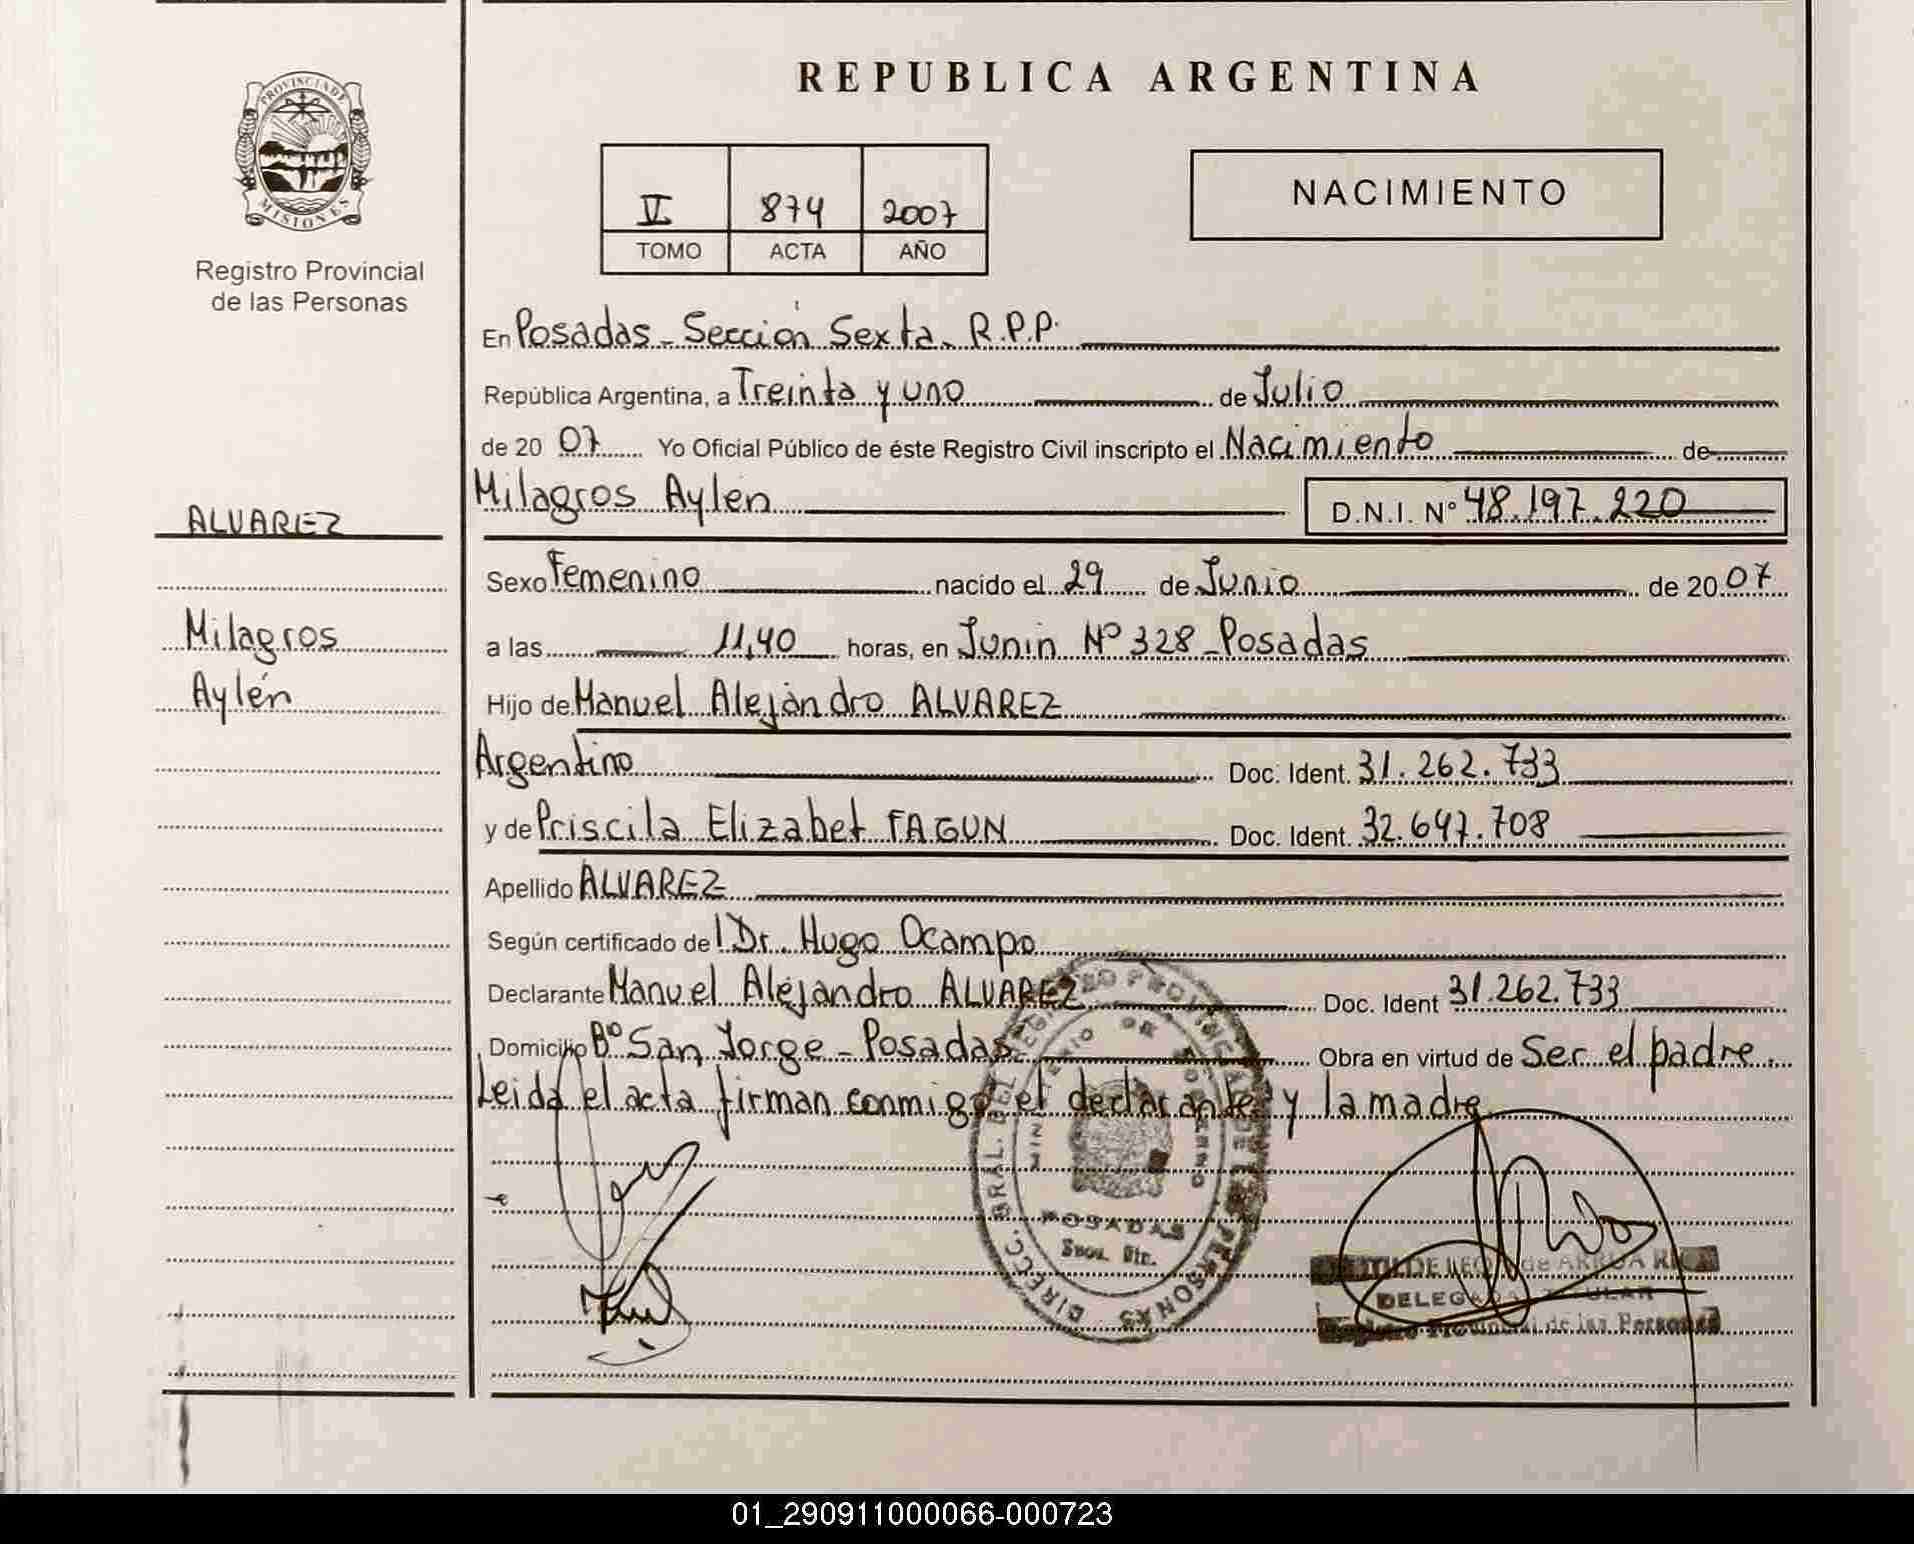 REPUBLICA ARGENTINA
PROVINCIA DE
MISIONES
Registro Provincial
de las Personas
V 874 2007
TOMO ACTA AÑO
NACIMIENTO
En Posadas - Sección Sexta - R.P.P.
República Argentina, a Treinta y uno de Julio
de 20 07 Yo Oficial Público de éste Registro Civil inscripto el Nacimiento de
Milagros Aylén D.N.I. N° 48.197.220
ALVAREZ
Milagros
Aylén
Sexo Femenino nacido el 29 de Junio de 20 07
a las 11,40 horas, en Junin Nº 328 - Posadas
Hijo de Manuel Alejandro ALVAREZ
Argentino Doc. Ident. 31.262.733
y de Priscila Elizabet FAGUN Doc. Ident. 32.647.708
Apellido ALVAREZ
Según certificado del Dr. Hugo Ocampo
Declarante Manuel Alejandro ALVAREZ Doc. Ident 31.262.733
Domicilio Bº San Jorge - Posadas Obra en virtud de Ser el padre.
Leida el acta firman conmigo el declarante y la madre
DIRECC. GRAL. DEL REGISTRO PROVINCIAL DE LAS PERSONAS
MINISTERIO DE GOBIERNO
POSADAS
de ARRUA
DELEGADA TITULAR
Registro Provincial de las Personas
01_290911000066-000723